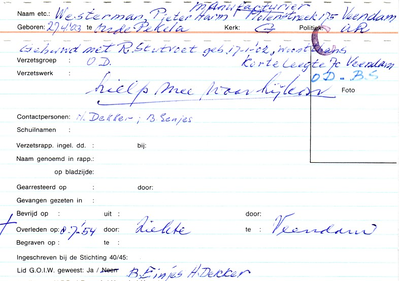 manufacturier
Naam etc.: Westerman, Pieter Harm Molenstreek 175 Veendam
Geboren: 27/4'03 te Oude Pekela Kerk: G Politiek: A.R.
Gehuwd met R. Stutvoet geb. 17-1-'02, woonthans
Verzetsgroep : O.D. Korteleegte 7c Veendam
Verzetswerk : O.D - B.S
hielp mee voorbijkon
Foto
Contactpersonen: H. Dekker; B Eenjes
Schuilnaam :
Verzetsrapp. ingel. dd. : bij:
Naam genoemd in rapp.:
op bladzijde:
Gearresteerd op : door:
Gevangen gezeten in :
Bevrijd op : uit : door:
Overleden op : 8-7-54 door: ziekte te : Veendam
Begraven op : te :
Ingeschreven bij de Stichting 40/45:
Lid G.O.I.W. geweest: Ja / Neen B. Einjes H. Dekker